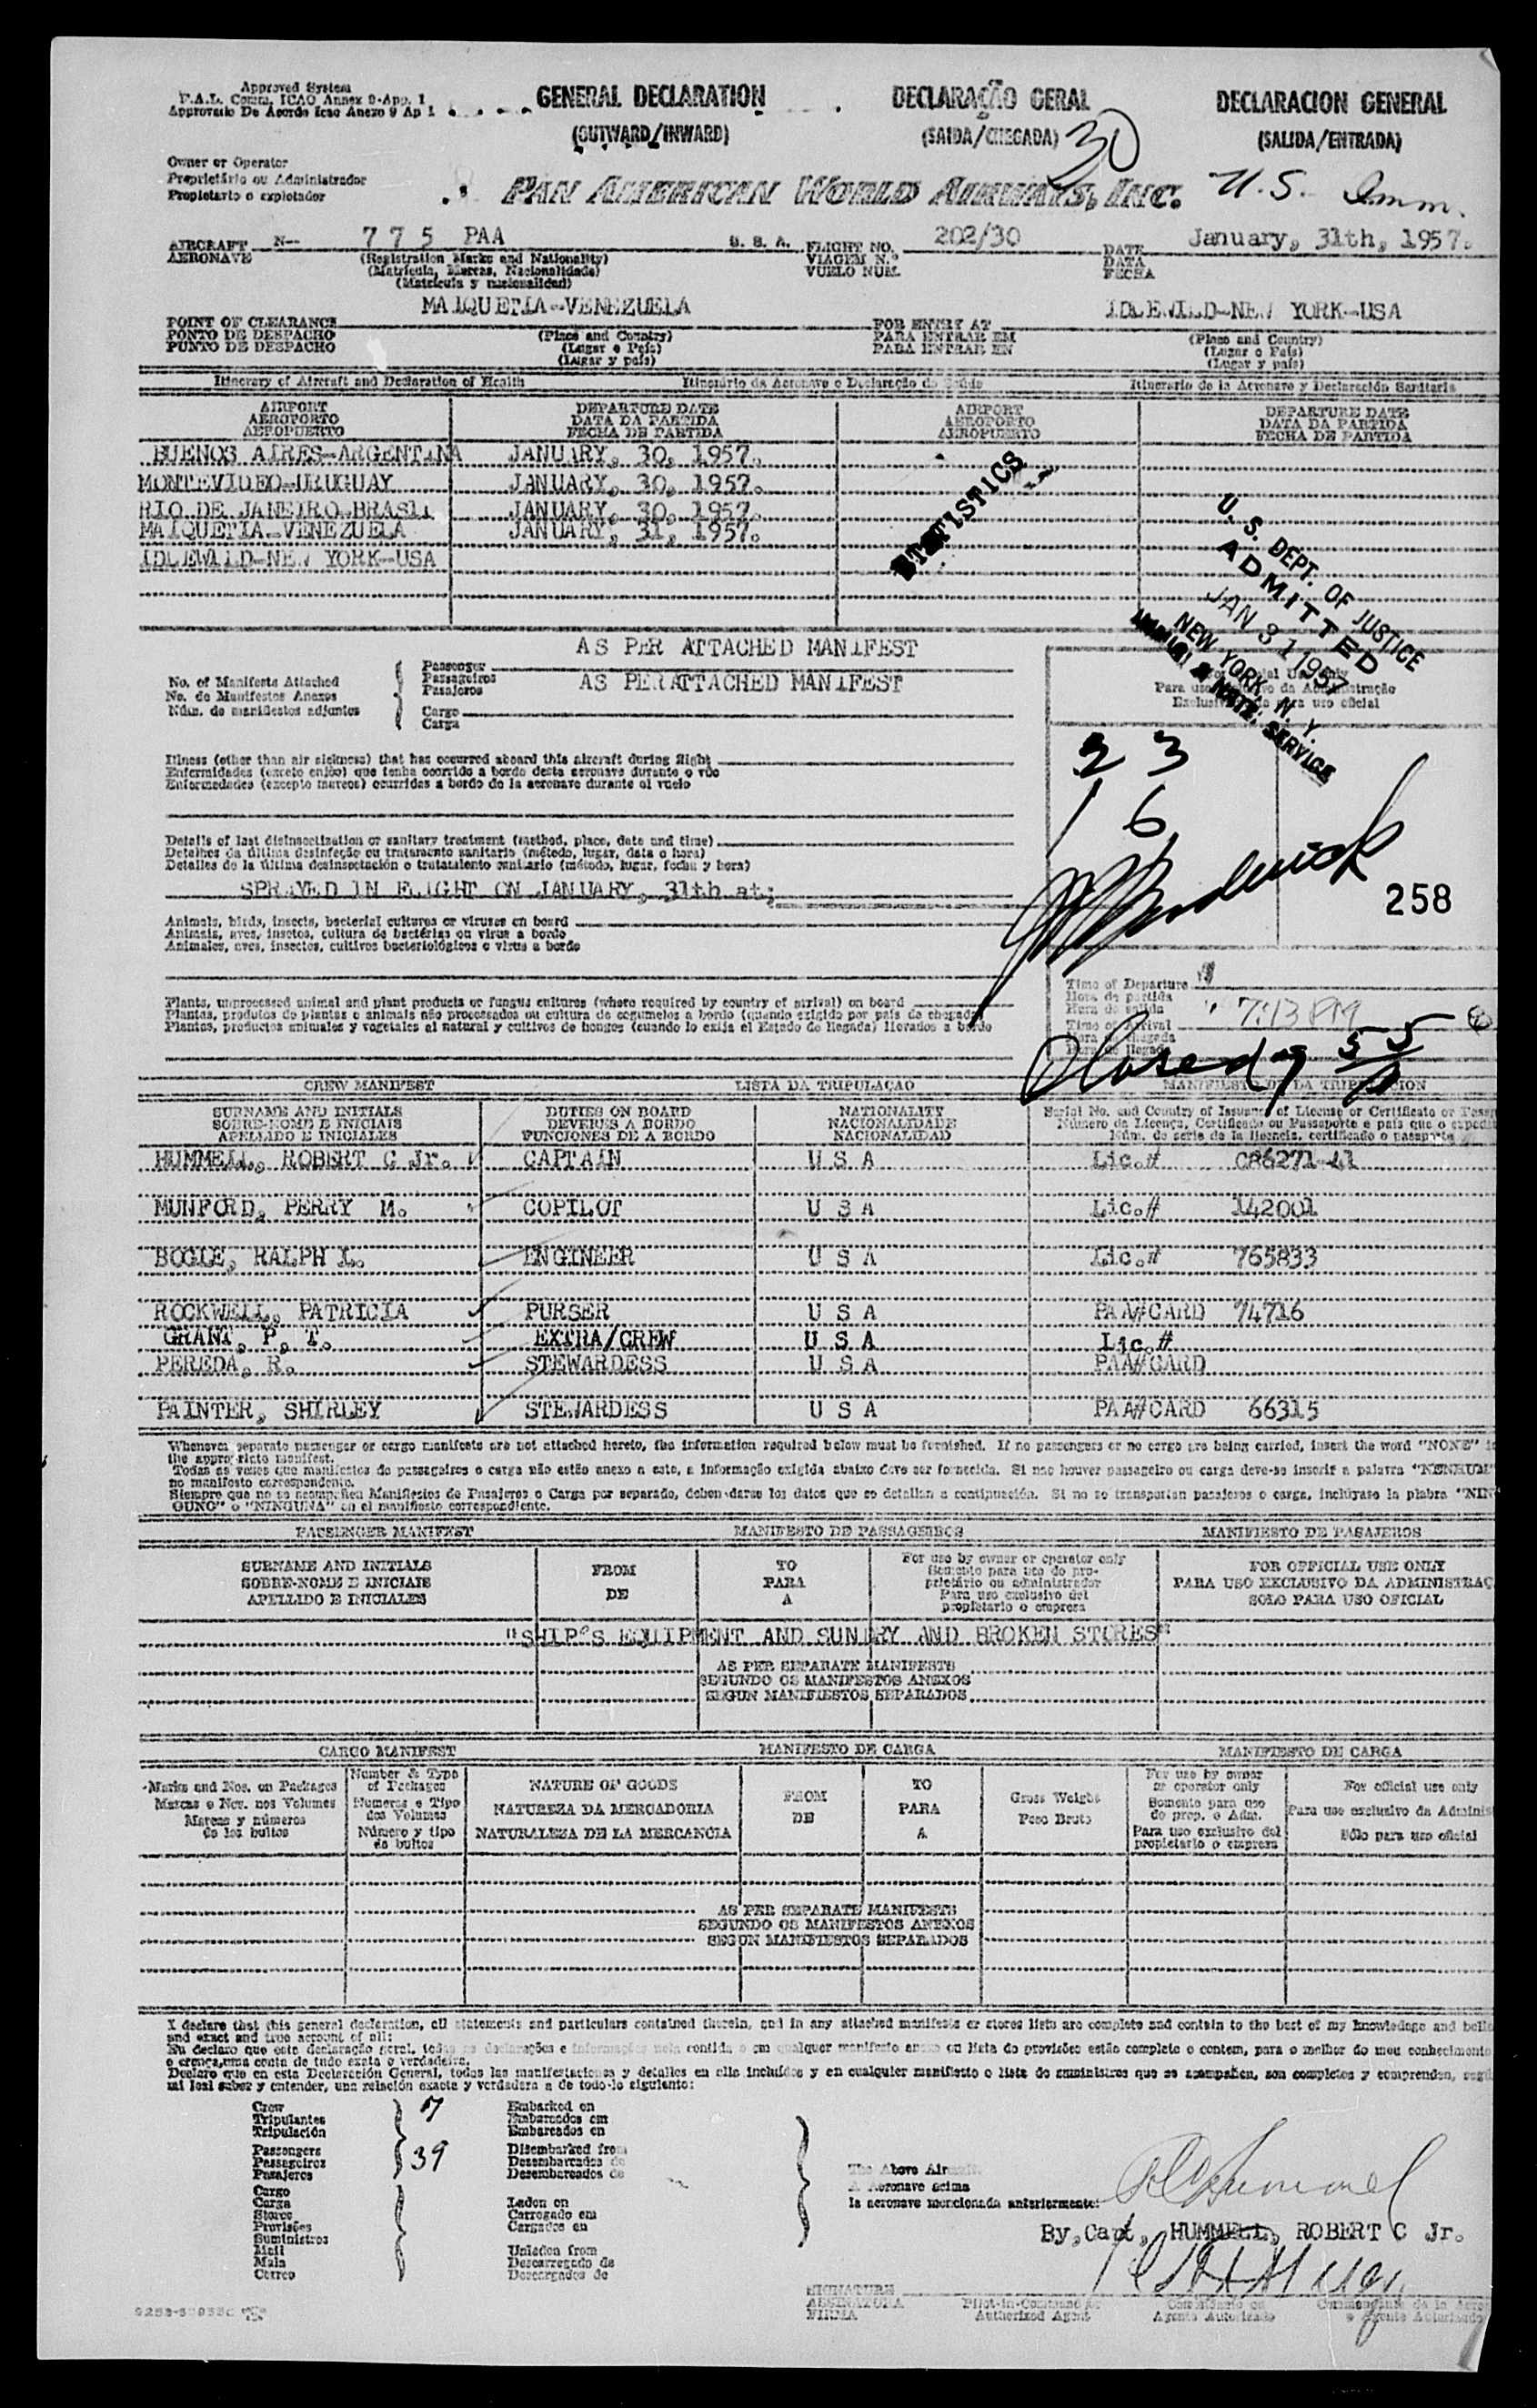 Approved System
F.A.L. Comm. ICAO Annex 9-App. 1
Approvado De Acordo Icao Anexo 9 Ap 1
GENERAL DECLARATION
(OUTWARD/INWARD)
DECLARAÇÃO GERAL
(SAIDA/CHEGADA)
DECLARACION GENERAL
(SALIDA/ENTRADA)
30
Owner or Operator
Proprietário ou Administrador
Propietario o explotador
PAN AMERICAN WORLD AIRWAYS, INC.
U.S. Imm.
AIRCRAFT
AERONAVE
N-- 775 PAA U. S. A.
(Registration Marks and Nationality)
(Matrícula, Marcas, Nacionalidade)
(Matrícula y nacionalidad)
FLIGHT NO. 202/30
VIAGEM N.º
VUELO NUM.
DATE January, 31th, 1957.
DATA
FECHA
MAIQUETIA--VENEZUELA
IDLEWILD-NEW YORK--USA
POINT OF CLEARANCE
PONTO DE DESPACHO
PUNTO DE DESPACHO
(Place and Country)
(Lugar e País)
(Lugar y país)
FOR ENTRY AT
PARA ENTRAR EM
PARA ENTRAR EN
(Place and Country)
(Lugar o País)
(Lugar y país)
Itinerary of Aircraft and Declaration of Health
Itinerário da Aeronave e Declaração de Saúde
Itinerario de la Aeronave y Declaración Sanitaria
AIRPORT
AEROPORTO
AEROPUERTO
DEPARTURE DATE
DATA DA PARTIDA
FECHA DE PARTIDA
AIRPORT
AEROPORTO
AEROPUERTO
DEPARTURE DATE
DATA DA PARTIDA
FECHA DE PARTIDA
BUENOS AIRES-ARGENTINA JANUARY, 30, 1957.
MONTEVIDEO-URUGUAY JANUARY, 30, 1957.
RIO DE JANEIRO-BRASIL JANUARY, 30, 1957.
MAIQUETIA-VENEZUELA JANUARY, 31, 1957.
IDLEWILD-NEW YORK--USA
STATISTICS
U. S. DEPT. OF JUSTICE
ADMITTED
JAN 31 1957
NEW YORK, N. Y.
IMMIG. & NATZ. SERVICE
No. of Manifests Attached
No. de Manifestos Anexos
Núm. de manifiestos adjuntos
AS PER ATTACHED MANIFEST
Passenger
Passageiros
Pasajeros
AS PER ATTACHED MANIFEST
Cargo
Carga
Para uso exclusivo da Administração
Exclusivamente para uso oficial
23
16
258
Illness (other than air sickness) that has occurred aboard this aircraft during flight
Enfermidades (exceto enjôo) que tenha ocorrido a bordo desta aeronave durante o vôo
Enfermedades (excepto mareos) ocurridas a bordo de la aeronave durante el vuelo
Details of last disinsectization or sanitary treatment (method, place, date and time)
Detalhes da última desinfeção ou tratamento sanitario (método, lugar, data e hora)
Detalles de la última desinsectación o tratamiento sanitario (método, lugar, fecha y hora)
SPRAYED IN FLIGHT ON JANUARY, 31th at;
Animals, birds, insects, bacterial cultures or viruses on board
Animais, aves, insetos, cultura de bactérias ou virus a bordo
Animales, aves, insectos, cultivos bacteriológicos o virus a bordo
Plants, unprocessed animal and plant products or fungus cultures (where required by country of arrival) on board
Plantas, produtos de plantas e animais não processados ou cultura de cogumelos a bordo (quando exigido por país de chegada)
Plantas, productos animales y vegetales al natural y cultivos de hongos (cuando lo exija el Estado de llegada) llevados a bordo
Time of Departure
Hora de partida
Hora de salida
Time of Arrival 7:13 PM
Hora de chegada
Hora de llegada
Closed 7 55
CREW MANIFEST LISTA DA TRIPULAÇAO MANIFIESTO DE LA TRIPULACION
SURNAME AND INITIALS
SOBRE-NOME E INICIAIS
APELLIDO E INICIALES
DUTIES ON BOARD
DEVERES A BORDO
FUNCIONES DE A BORDO
NATIONALITY
NACIONALIDADE
NACIONALIDAD
Serial No. and Country of Issuance of License or Certificate or
Número da Licença, Certificado ou Passaporte e país que o
Núm. de serie de la licencia, certificado o pasaporte
HUMMELL, ROBERT C Jr. CAPTAIN U S A Lic.# C86271-41
MUNFORD, PERRY M. COPILOT U S A Lic.# 142001
BOGLE, RALPH L. ENGINEER U S A Lic.# 765833
ROCKWELL, PATRICIA PURSER U S A PAA#CARD 74716
GRANT, P, T. EXTRA/CREW U S A Lic.#
PEREDA, R. STEWARDESS U S A PAA#CARD
PAINTER, SHIRLEY STEWARDESS U S A PAA#CARD 66315
Whenever separate passenger or cargo manifests are not attached hereto, the information required below must be furnished. If no passengers or no cargo are being carried, insert the word "NONE" in
the appropriate manifest.
Todas as vezes que manifestos de passageiros e carga não estão anexo a este, a informação exigida abaixo deve ser fornecida. Si nao houver passageiro ou carga deve-se inserir a palavra "NENHUM"
no manifesto correspondente.
Siempre que no se acompañen Manifiestos de Pasajeros o Carga por separado, deben darse los datos que se detallan a continuación. Si no se transportan pasajeros o carga, inclúyase la plabra "NIN
GUNO" o "NINGUNA" en el manifiesto correspondiente.
PASSENGER MANIFEST MANIFESTO DE PASSAGEIROS MANIFIESTO DE PASAJEROS
SURNAME AND INITIALS
SOBRE-NOME E INICIAIS
APELLIDO E INICIALES
FROM
DE
TO
PARA
A
For use by owner or operator only
Somente para uso do pro-
prietário ou administrador
Para uso exclusivo del
propietario o empresa
FOR OFFICIAL USE ONLY
PARA USO EXCLUSIVO DA ADMINISTRAÇ
SOLO PARA USO OFICIAL
"SHIP'S EQUIPMENT AND SUNDRY AND BROKEN STORES"
AS PER SEPARATE MANIFESTS
SEGUNDO OS MANIFESTOS ANEXOS
SEGUN MANIFIESTOS SEPARADOS
CARGO MANIFEST MANIFESTO DE CARGA MANIFIESTO DE CARGA
Marks and Nos. on Packages
Marcas e Nos. nos Volumes
Marcas y números
de los bultos
Number & Type
of Packages
Numeros e Tipo
dos Volumes
Número y tipo
de bultos
NATURE OF GOODS
NATUREZA DA MERCADORIA
NATURALEZA DE LA MERCANCIA
FROM
DE
TO
PARA
A
Gross Weight
Peso Bruto
For use by owner
or operator only
Somente para uso
do prop. o Adm.
Para uso exclusivo del
propietario o empresa
For official use only
Para uso exclusivo da Adminis
Sólo para uso oficial
AS PER SEPARATE MANIFESTS
SEGUNDO OS MANIFESTOS ANEXOS
SEGUN MANIFIESTOS SEPARADOS
I declare that this general declaration, all statements and particulars contained therein, and in any attached manifests or stores lists are complete and contain to the best of my knowledge and belie
and exact and true account of all:
Eu declaro que este declaração geral, todas as declarações e informações nela contida e em qualquer manifesto anexo ou lista de provisões estão completo e contem, para o melhor do meu conhecimento
e crença, uma conta de tudo exata e verdadeira.
Declaro que en esta Declaración General, todas las manifestaciones y detalles en ella incluídos y en cualquier manifiesto o lista de suministros que se acompañen, son completos y comprenden,
mi leal saber y entender, una relación exacta y verdadera a de todo lo siguiente:
Crew 7
Tripulantes
Tripulación
Passengers 39
Passageiros
Pasajeros
Cargo
Carga
Stores
Provisões
Suministros
Mail
Mala
Correo
Embarked on
Embarcados em
Embarcados en
Disembarked from
Desembarcados de
Desembarcados de
Laden on
Carregado em
Cargados en
Unladen from
Descarregado de
Descargados de
The Above Aircraft
A Aeronave acima
la aeronave mencionada anteriormente:
By, Capt, HUMMELL, ROBERT C Jr.
SIGNATURE
ASSINATURA
FIRMA
Pilot-in-Command or
Authorized Agent
Agente Autorizado
o Agente Autorizado